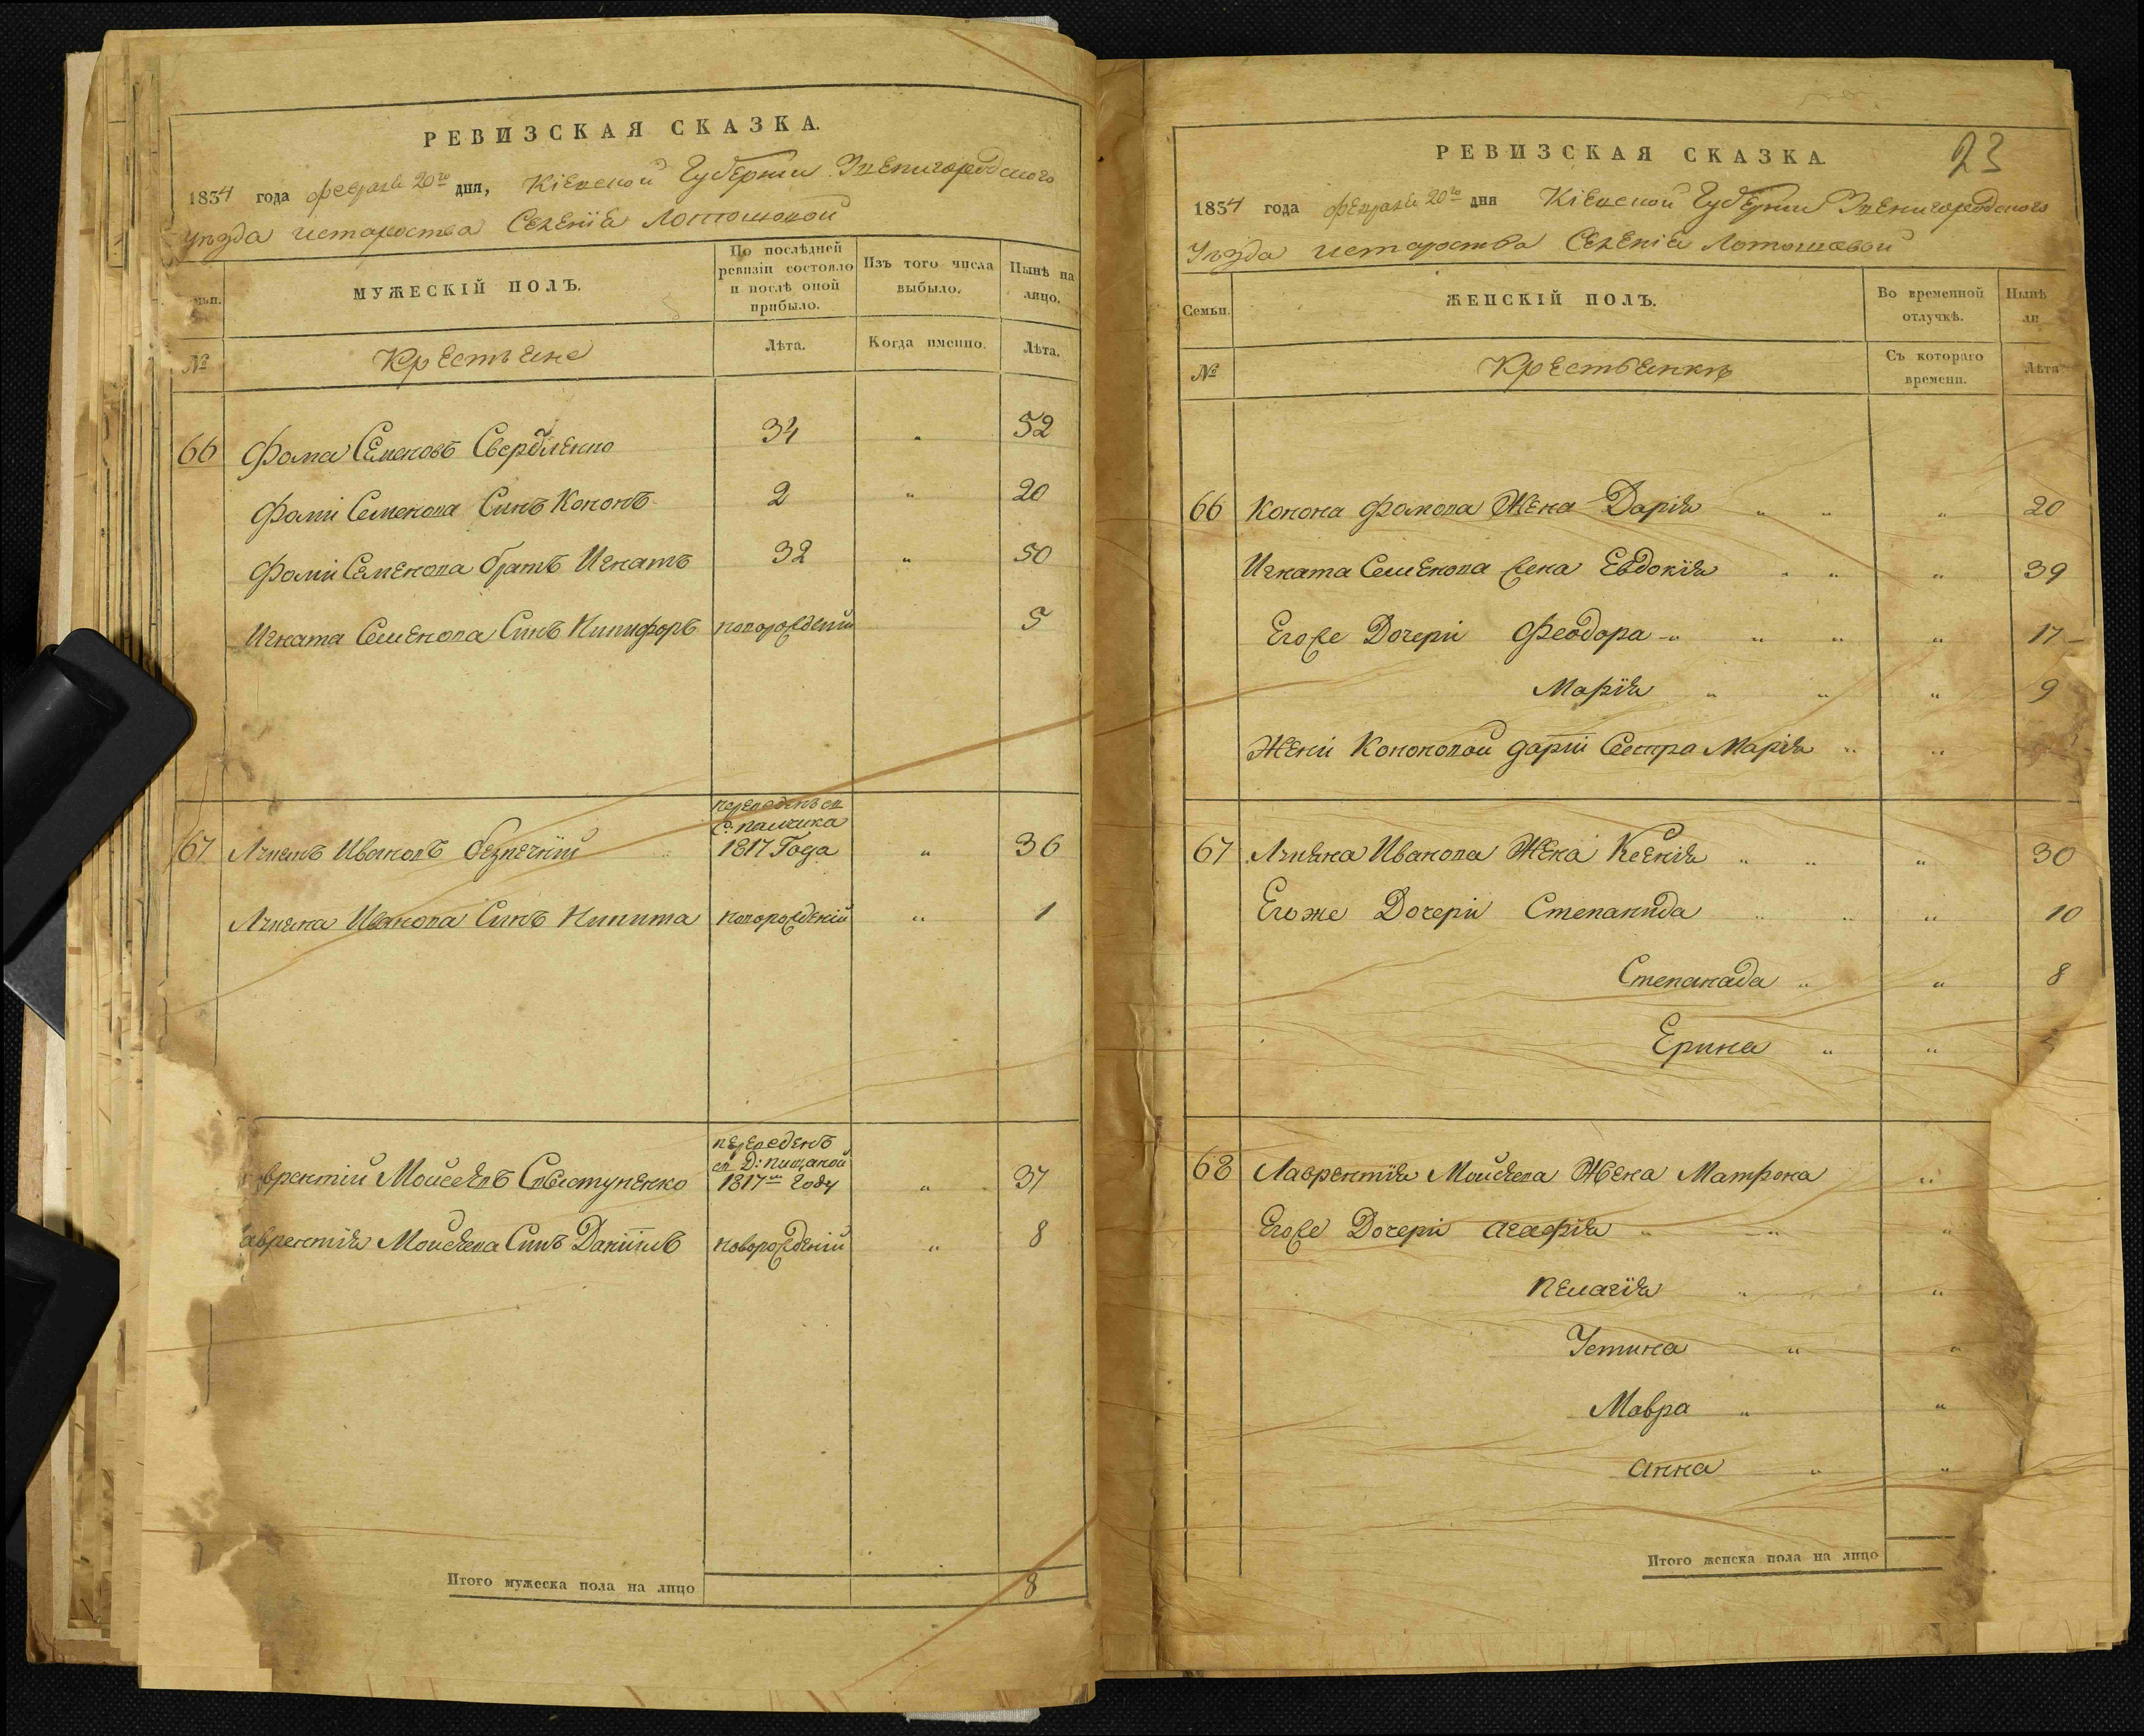 РЕВИЗСКАЯ СКАЗКА.
1834 года февраля 20го дня, Кіевской Губерніи Звенигородского
уѣзда истароства Селенія Лотошовой
МУЖЕСКІЙ ПОЛЪ.
По послѣдней ревизіи состояло и послѣ оной прибыло.
Изъ того числа выбыло.
Нынѣ на лицо.
№
Крестьяне
Лѣта.
Когда именно.
Лѣта.
66 Фома Семеновъ Свердленко 34 " 52
Фоми Семенова Синъ Кононъ 2 " 20
Фоми Семенова братъ Игнатъ 32 " 50
Игната Семенова Синъ Никифоръ новорожденій 5
67 Лукянъ Ивановъ безпечний переведенъ 1817 Года " 36
Лукяна Ивановa Синъ Никита новорожденій " 1
врентій Мойсеевъ Свистуненко переведенъ 1817 году " 37
аврентія Мойсеева Синъ Даніилъ новорожденій " 8
Итого мужеска пола на лицо 8
23
РЕВИЗСКАЯ СКАЗКА.
1834 года февраля 20го дня Кіевской Губерніи Звенигородского
Уѣзда истароства Селенія Лотошовой
Семьи.
ЖЕНСКІЙ ПОЛЪ.
Во временной отлучкѣ.
Нынѣ
№
Крестьянкѣ
Съ котораго времени.
Лѣта
66 Конона Фомова Жена Дарія " " " 20
Игната Семенова жена Евдокія " " " 39
Егоже Дочери Феодора " " " " 17
Марія " " " 9
Жени Кононовой дарій Сестра Марія " "
67 Лукяна Иванова Жена Ксенія " " " 30
Егоже Дочери Степанида " " " 10
Степанада " " 8
Ерина " "
68 Лаврентія Мойсеева Жена Матрона "
Егоже Дочери агафія " " "
Пелагія " "
Устина " "
Мавра " "
анна " "
Итого женска пола на лицо